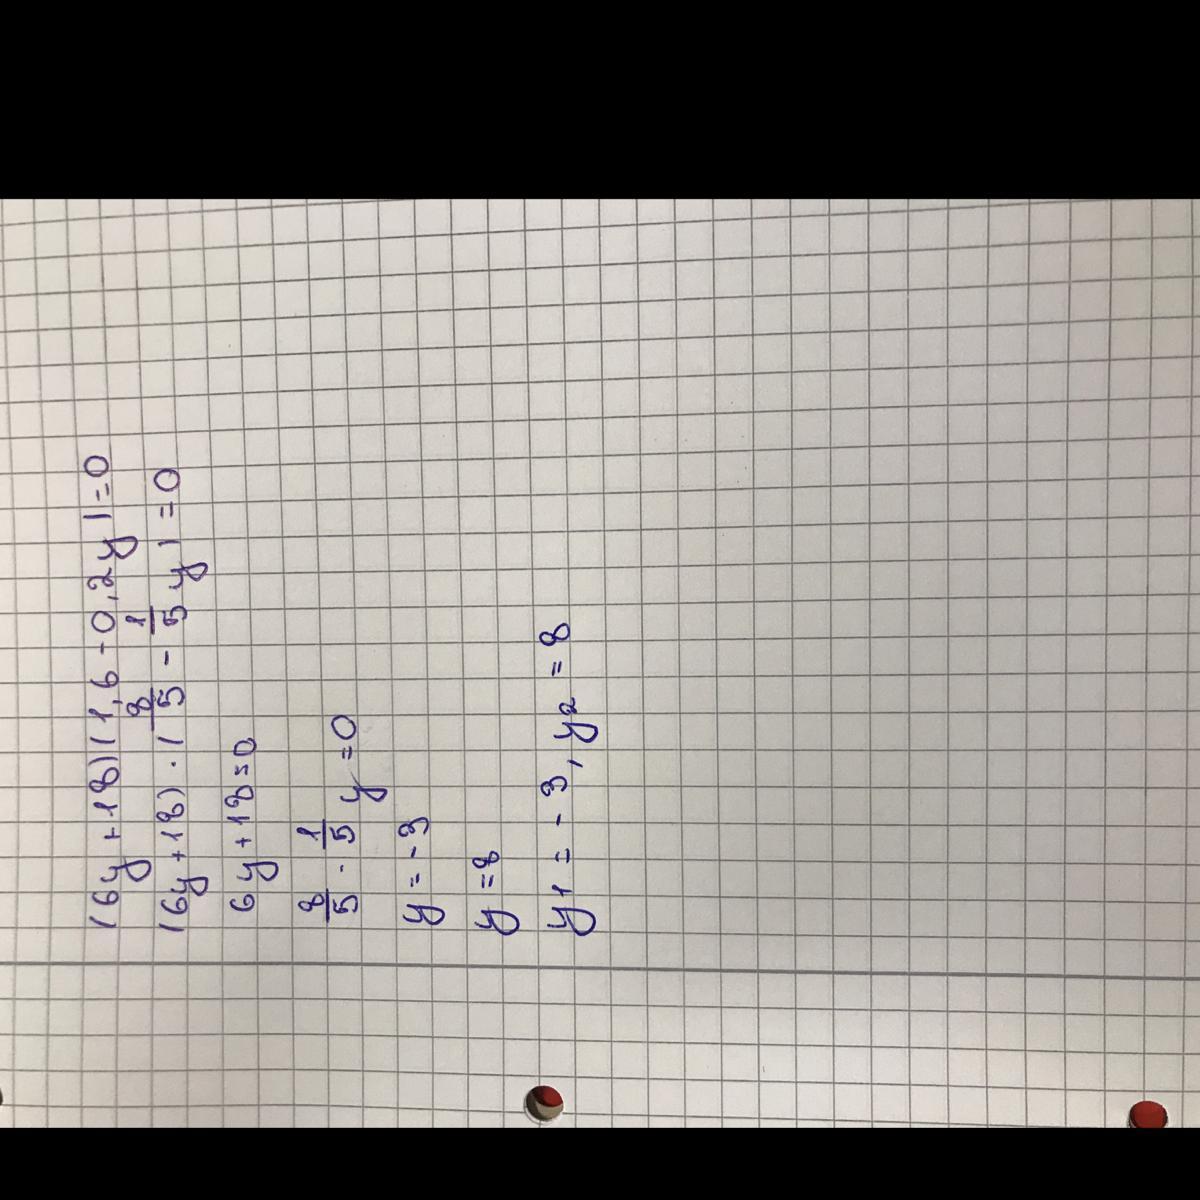 (6y+18)(1,6-0,2y)=0
(6y+18)·(8/5-1/5y)=0
6y+18=0
8/5-1/5y=0
y=-3
y=8
y1=-3, y2=8